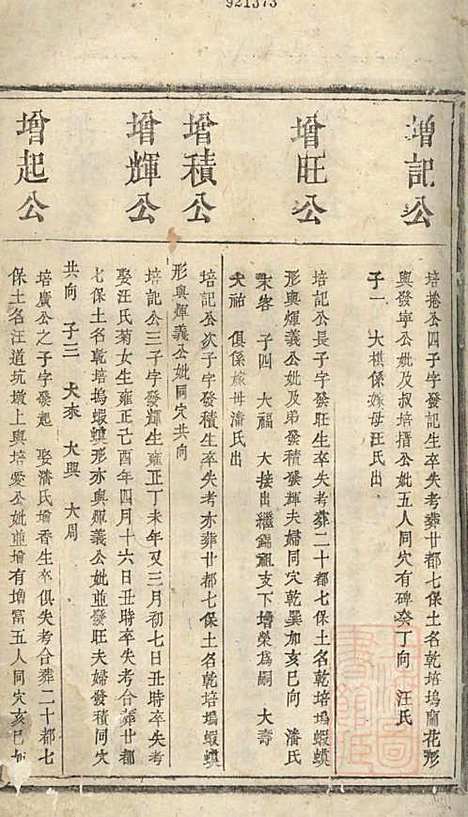 921373
增記公
培捲公四子字發記生卒失考葬廿都七保土名乾培塢蘭花形
與發寧公妣及叔培搢公妣五人同穴有碑癸丁向 汪氏
子一 大棋係嫁母汪氏出
增旺公
培記公長子字發旺生卒失考葬二十都七保土名乾培塢蝦蟆
形與輝義公妣及弟發積發輝夫婦同穴乾巽加亥巳向 潘氏
來客 子四 大福 大接出繼鏡祖支下增榮為嗣 大壽
大祐 俱係嫁母潘氏出
增積公
培記公次子字發積生卒失考亦葬廿都七保土名乾培塢蝦蟆
形與輝義公妣同穴共向
增輝公
培記公三子字發輝生雍正丁未年又三月初七日丑時卒失考
娶汪氏菊女生雍正己酉年四月十六日丑時卒失考葬二十都
七保土名乾培塢蝦蟆形亦與輝義公妣並發旺夫婦發積同穴
共向 子三 大來 大興 大周
增起公
培廣公之子字發起 娶潘氏增香生卒俱失考合葬二十都七
保土名汪道坑墩上與培愛公妣並增有增富五人同穴亥巳加